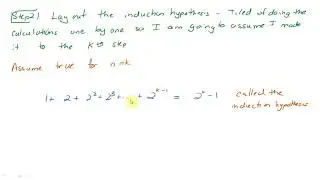 Step 2) Lay out the induction hypothesis - Tired of doing the
calculations one by one so I am going to assume I made
it to the kth step
Assume true for n=k
1 + 2 + 2² + 2³ + ... + 2^(k-1) = 2^k - 1
called the
induction hypothesis